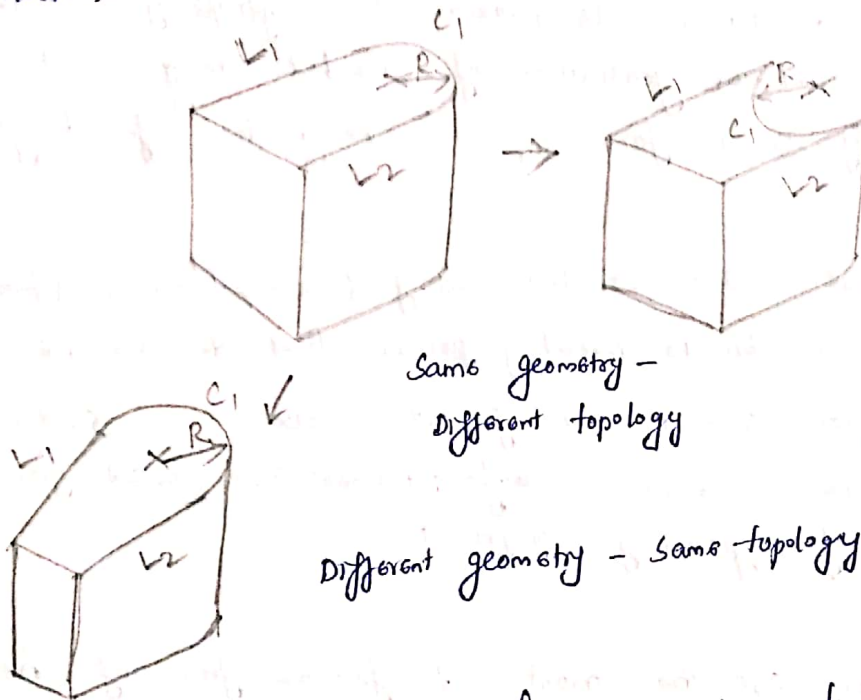 C1
L1
R
L2
L1
R
C1
L2
Same geometry -
Different topology
C1
L1
R
L2
Different geometry - Same topology